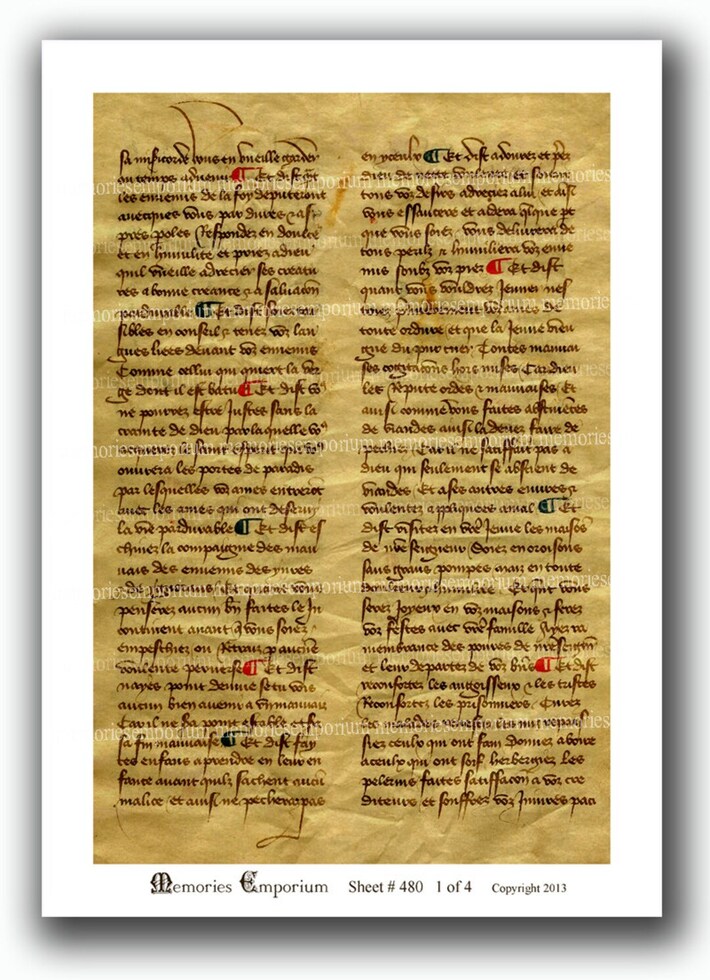 sa misicorde vous en vueille garder
au temps advenir ¶ Et dist
les ennemis de la foy deputeront
avecques vous par dures & as
pres poles Respondez en doulce
et en humilite et priez a dieu
quil vueille adrecier ses creatu
res a bonne creance & a salvacon
pardurable ¶ Et dist soiez pai
sibles en conseil & tenez voz lan
gues liees devant voz ennemis
Comme cellui qui quiert la ver
ge dont il est batu ¶ Et dist
ne pourrez estre Justes sans la
crainte de dieu par laquelle
le saint esperit qui
ouvrera les portes de paradis
par lesquelles voz ames entreront
avec les ames qui ont deservy
la vie pardurable ¶ Et dist es
chivez la compaignie des mau
vais des ennemis des
Et quant vous
penserez aucun faites le In
continent avant que vous soiez
empeschiez ou par aucune
voulente perverse ¶ Et dist
nayez point denvie se tu vois
aucun bien avenir a un mauvais
Car il ne sa point estable et
sa fin mauvaise ¶ Et dist fay
tes enfans aprendre en leur en
fance avant quilz sachent aucun
malice et ainsi ne pecheront pas
en yceulx ¶ Et dist adourez et
dieu de
tous voz desirs adreciez a lui et ainsi
vous essaucera et aidera
que vous soiez vous delivrera de
tous perilz & humiliera voz enne
mis soubz voz piez ¶ Et dist
quant vous vouldrez Jeuner net
toiez voz ames de
toute ordure et que la Jeune vien
gne du pur cuer Toutes mauvai
ses cogitacions hors mises Car dieu
les Repute ordes & mauvaises Et
ainsi comme vous faites abstinences
de viandes ainsi la devez faire de
pechier Car il ne satiffait pas a
dieu qui seulement se abstient de
viandes Et a ses autres euvres &
voulentez appliquees a mal ¶ Et
dist visitez en Jeune les maisons
de seigneur Soiez en oroisons
sans grans pompes mais en toute
humilite Et quant vous
serez Joyeux en voz maisons & ferez
voz festes avec famille Ayez ra
membrance des povres de
et leur departez de voz biens ¶ Et dist
reconfortez les angoisseux & les tristes
Reconfortez les prisonniers Curez
les malades
siez ceulx qui ont fain Donnez a boire
a ceulx qui ont soif herbergiez les
pelerins faites satiffacon a voz cre
diteurs et souffrez voz Injures paci
Memories Emporium Sheet # 480 1 of 4 Copyright 2013